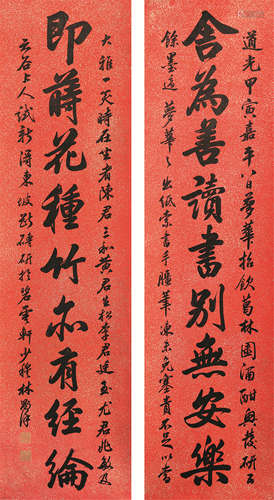 道光甲寅嘉平八日夢華招飲葛林園酒酣興發研丐
舍為善讀書別無安樂
餘墨適夢華之出紙索書手腫筆凍未免塞責不足以當
大雅一笑時在坐者陳君三和黃君生松李君廷玉尤君兆敏及
即蒔花種竹亦有經綸
云谷上人試新得東坡斷碑研於碧雲軒少穆林則徐